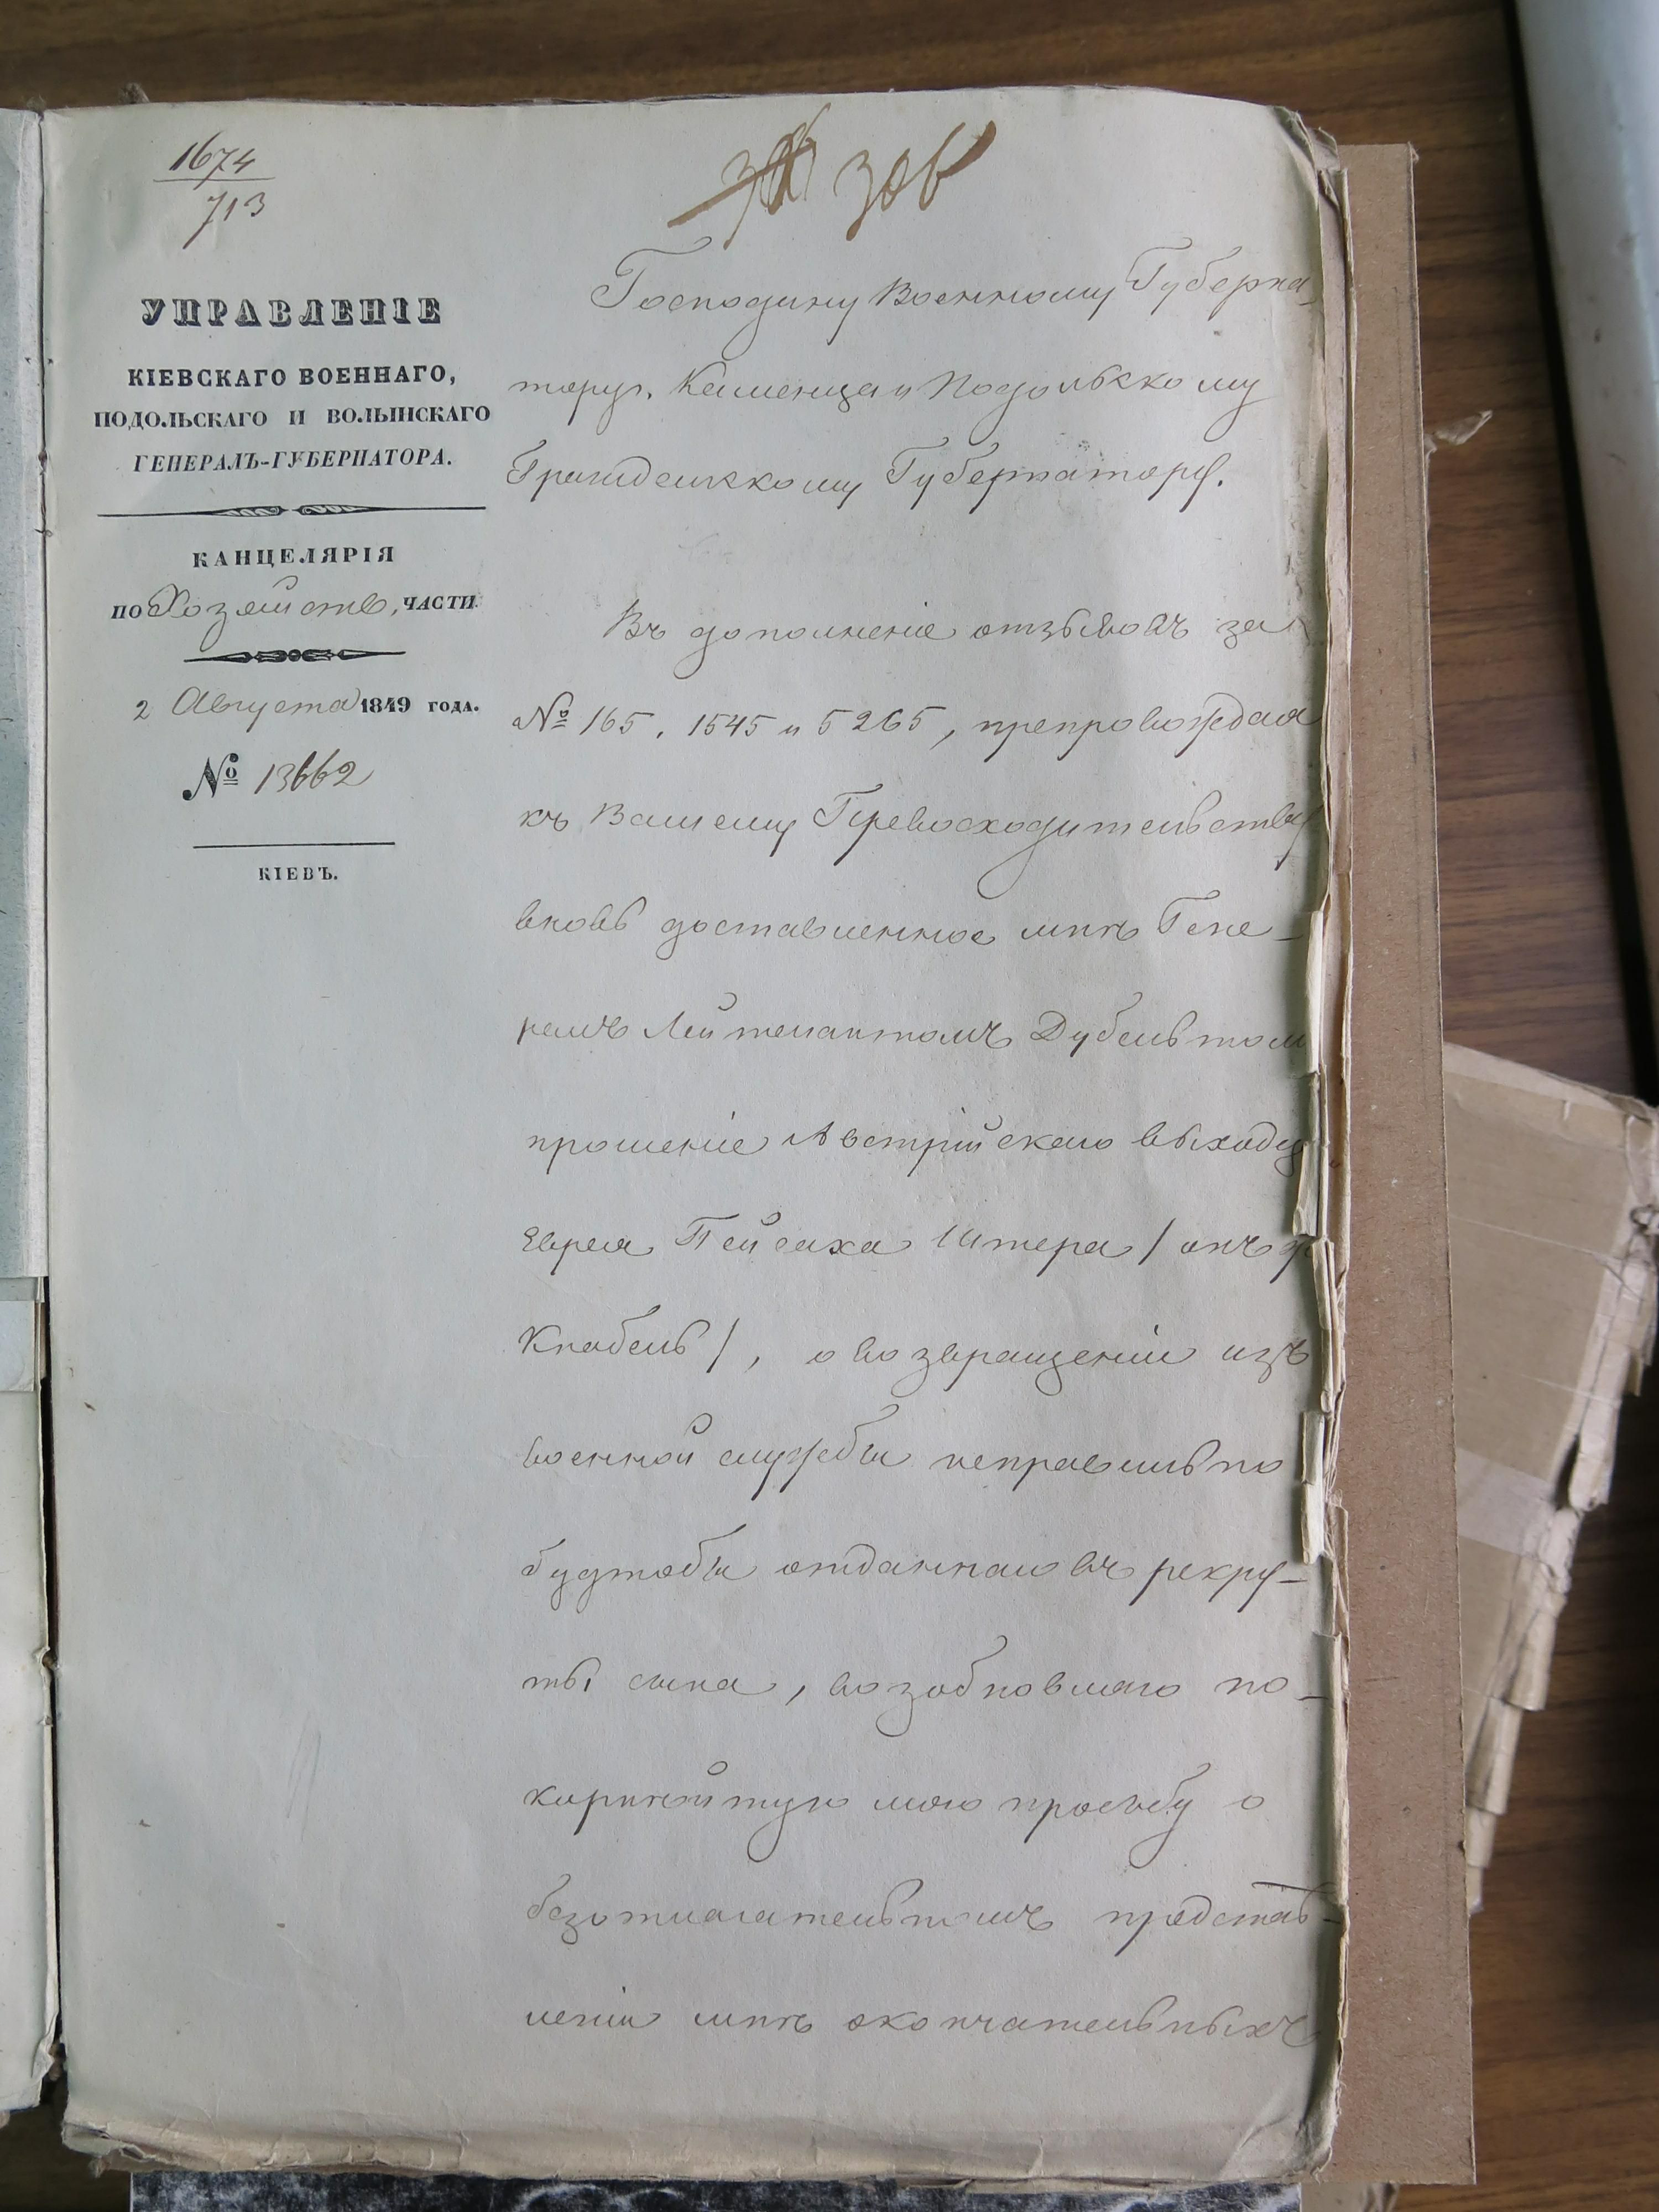 1674
713
306
УПРАВЛЕНІЕ
КІЕВСКАГО ВОЕННАГО,
ПОДОЛЬСКАГО И ВОЛЫНСКАГО
ГЕНЕРАЛЪ-ГУБЕРНАТОРА.
КАНЦЕЛЯРІЯ
ПО Хозяйств. ЧАСТИ.
2 Августа 1849 ГОДА.
№ 13662
КІЕВЪ.
Господину Военному Губерна-
тору г. Каменца и Подольскому
Гражданскому Губернатору.
Въ дополненіе отзывовъ за
№ 165, 1545 и 5265, препровождая
къ Вашему Превосходительству
вновь доставленное мнѣ Гене-
ралъ Лейтенантомъ Дубельтом
прошеніе Австрійскаго выходца
Еврея Пейсаха Интера / онъ
Кнабель /, о возвращеніи изъ
военной службы неправильно
будтобы отданнаго въ рекру-
ты сына, возобновляю по-
корнѣйшую мою прозьбу о
безотлагательномъ представ-
леніи мнѣ окончательныхъ